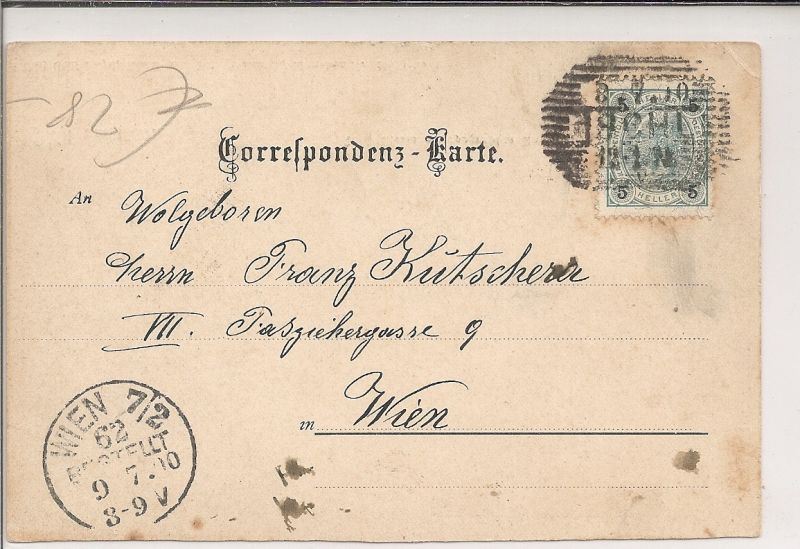 -82
Correspondenz-Karte.
8 7.00
ISCHL
5 5
5 HELLER 5
An Wolgeboren
Herrn Franz Kutschera
VII. Fasziehergasse 9
in Wien
WIEN 7/2
62
BESTELLT
9 7.00
8-9 V